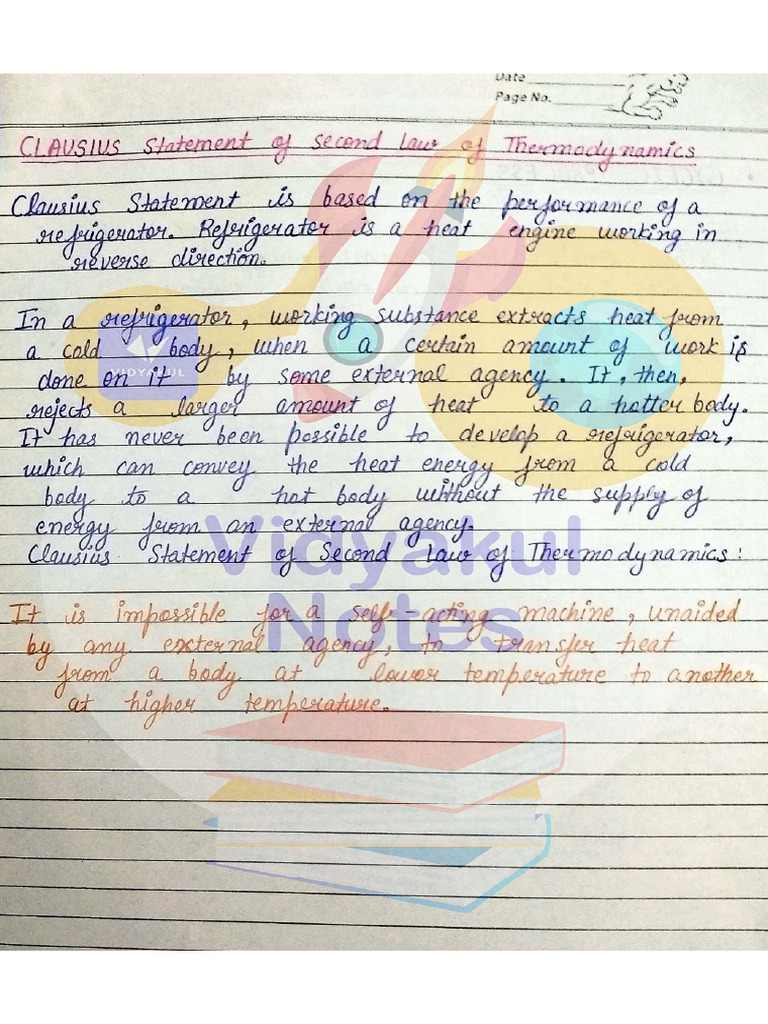 Date
Page No.
CLAUSIUS Statement of second Law of Thermodynamics
Clausius Statement is based on the performance of a
refrigerator. Refrigerator is a heat engine working in
reverse direction.
In a refrigerator, working substance extracts heat from
a cold body, when a certain amount of work is
done on it by some external agency. It, then,
rejects a larger amount of heat to a hotter body.
It has never been possible to develop a refrigerator,
which can convey the heat energy from a cold
body to a hot body without the supply of
energy from an external agency.
Clausius Statement of Second Law of Thermodynamics:
It is impossible for a self-acting machine, unaided
by any external agency, to transfer heat
from a body at lower temperature to another
at higher temperature.
VIDYAKUL
Vidyakul
Notes